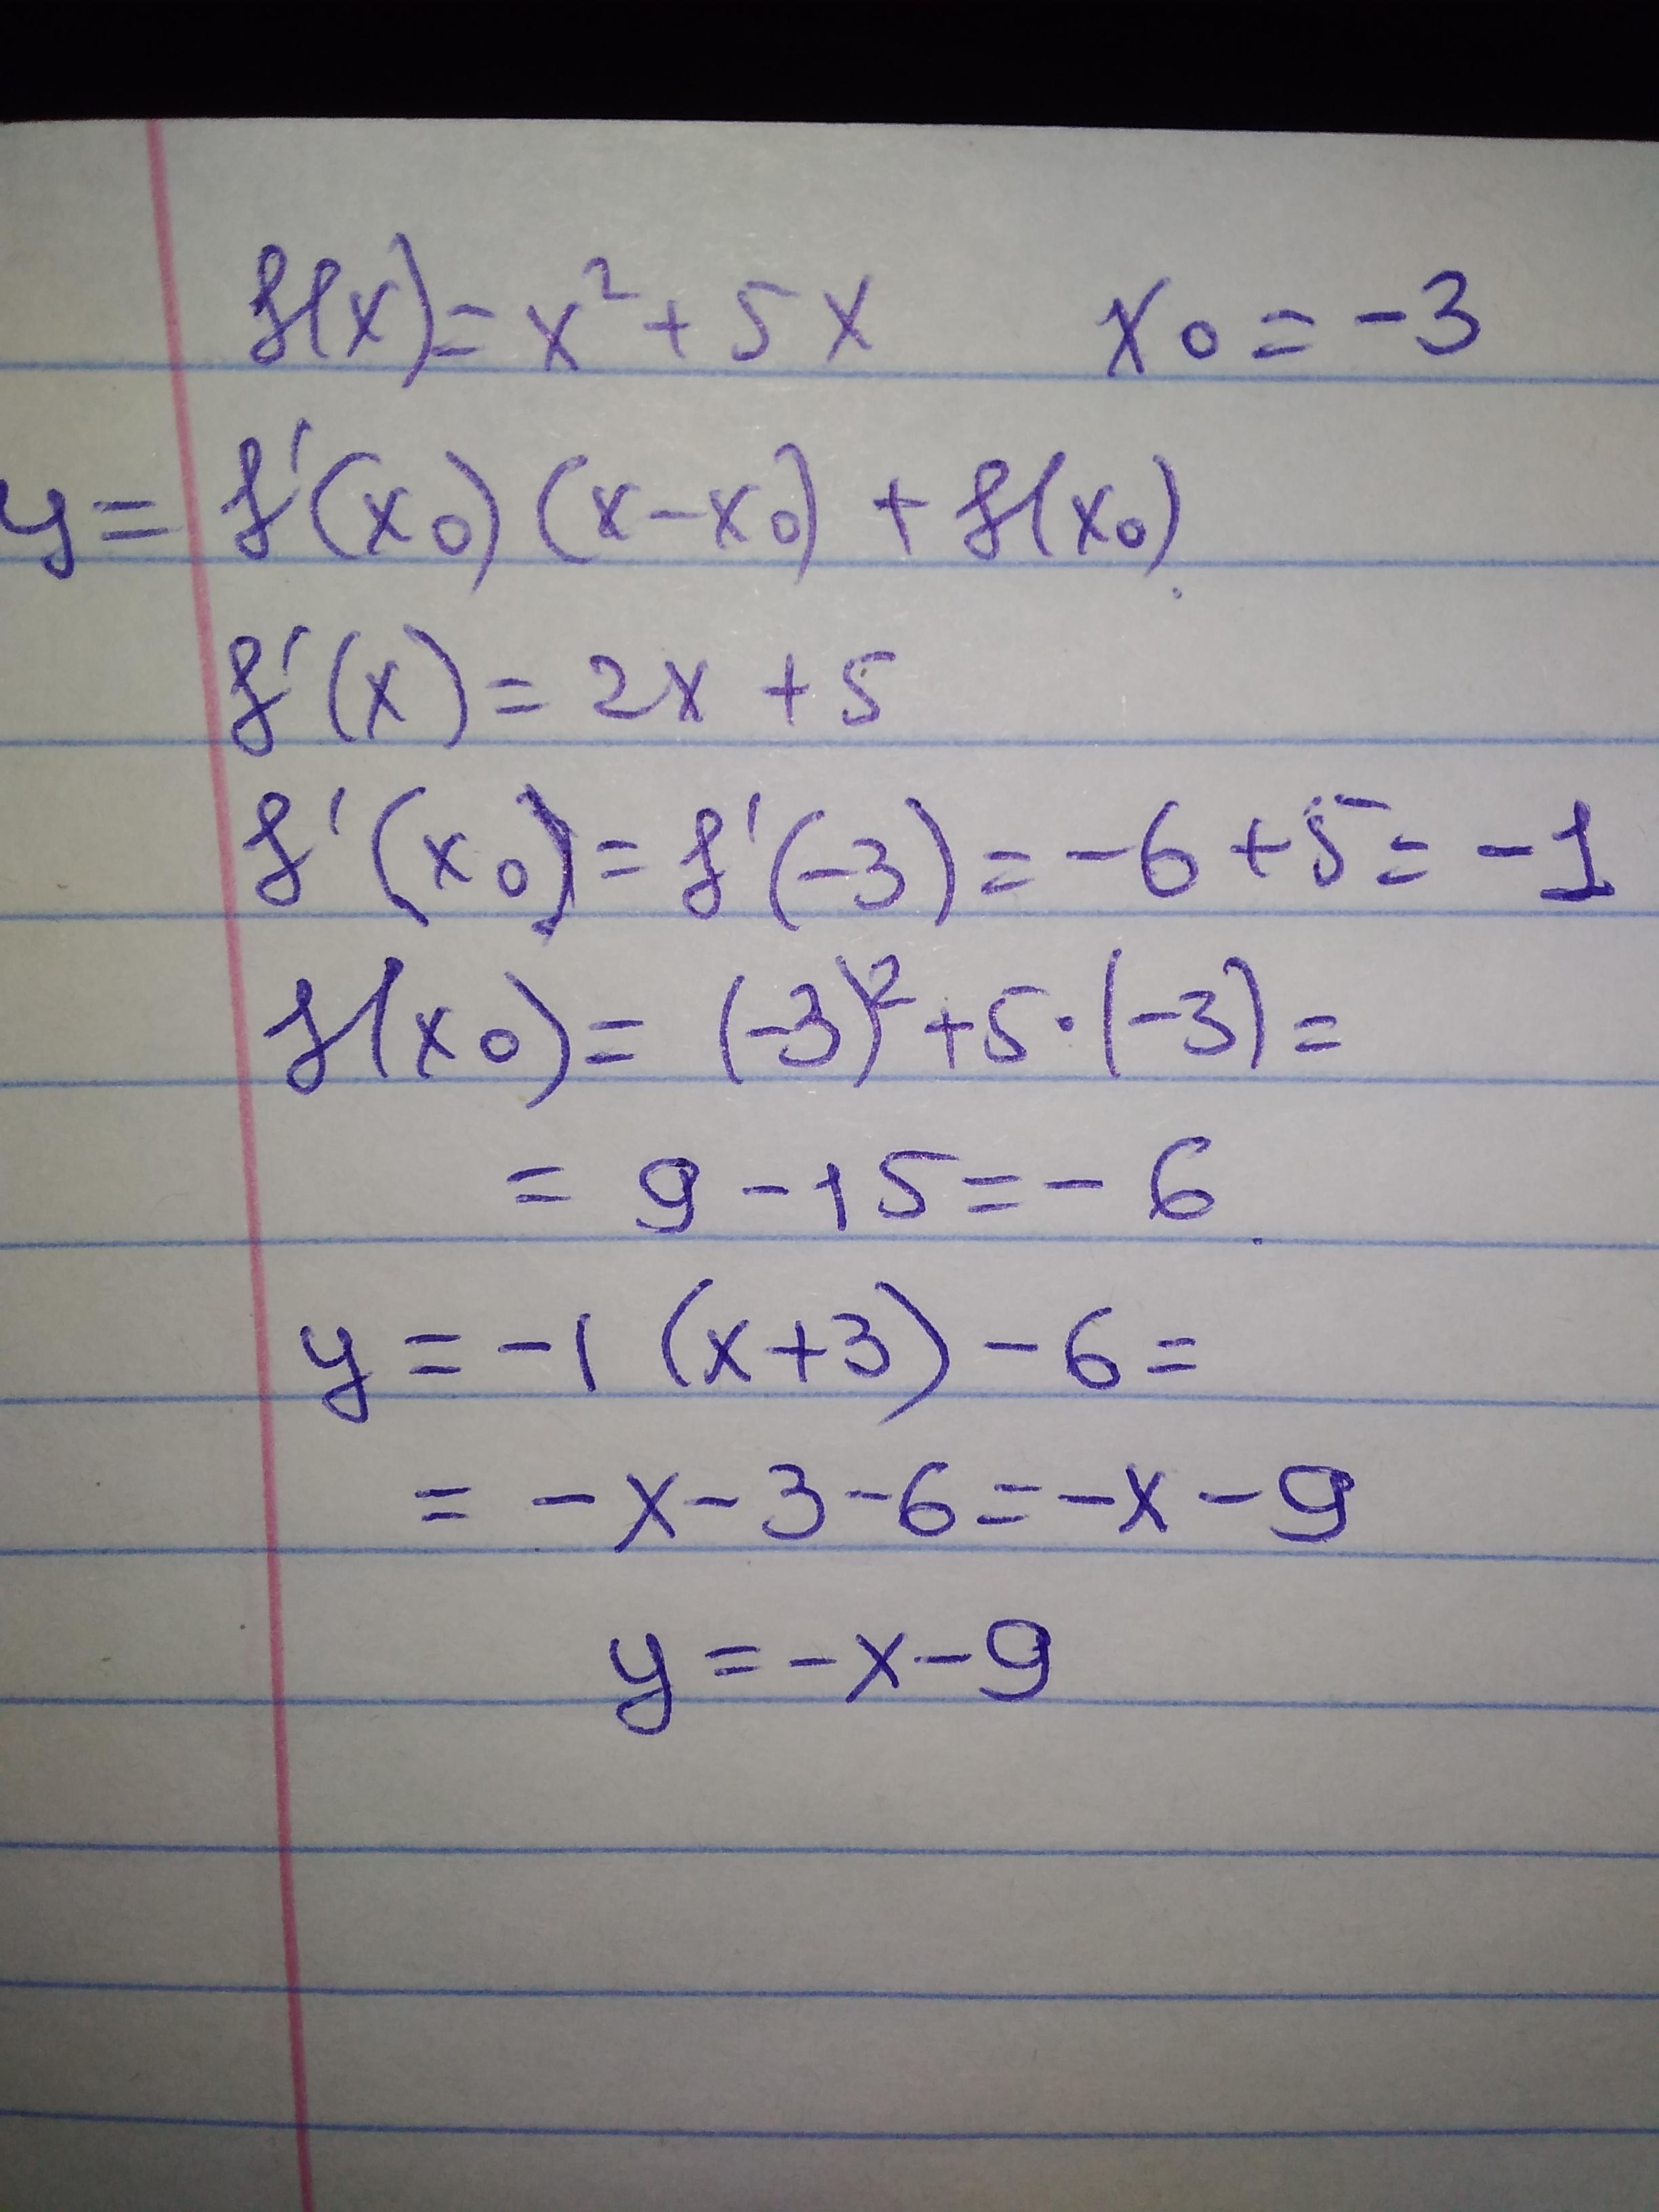 f(x)=x²+5x x₀=-3
y=f'(x₀)(x-x₀)+f(x₀).
f'(x)=2x+5
f'(x₀)=f'(-3)=-6+5=-1
f(x₀)=(-3)²+5·(-3)=
=9-15=-6.
y=-1(x+3)-6=
=-x-3-6=-x-9
y=-x-9